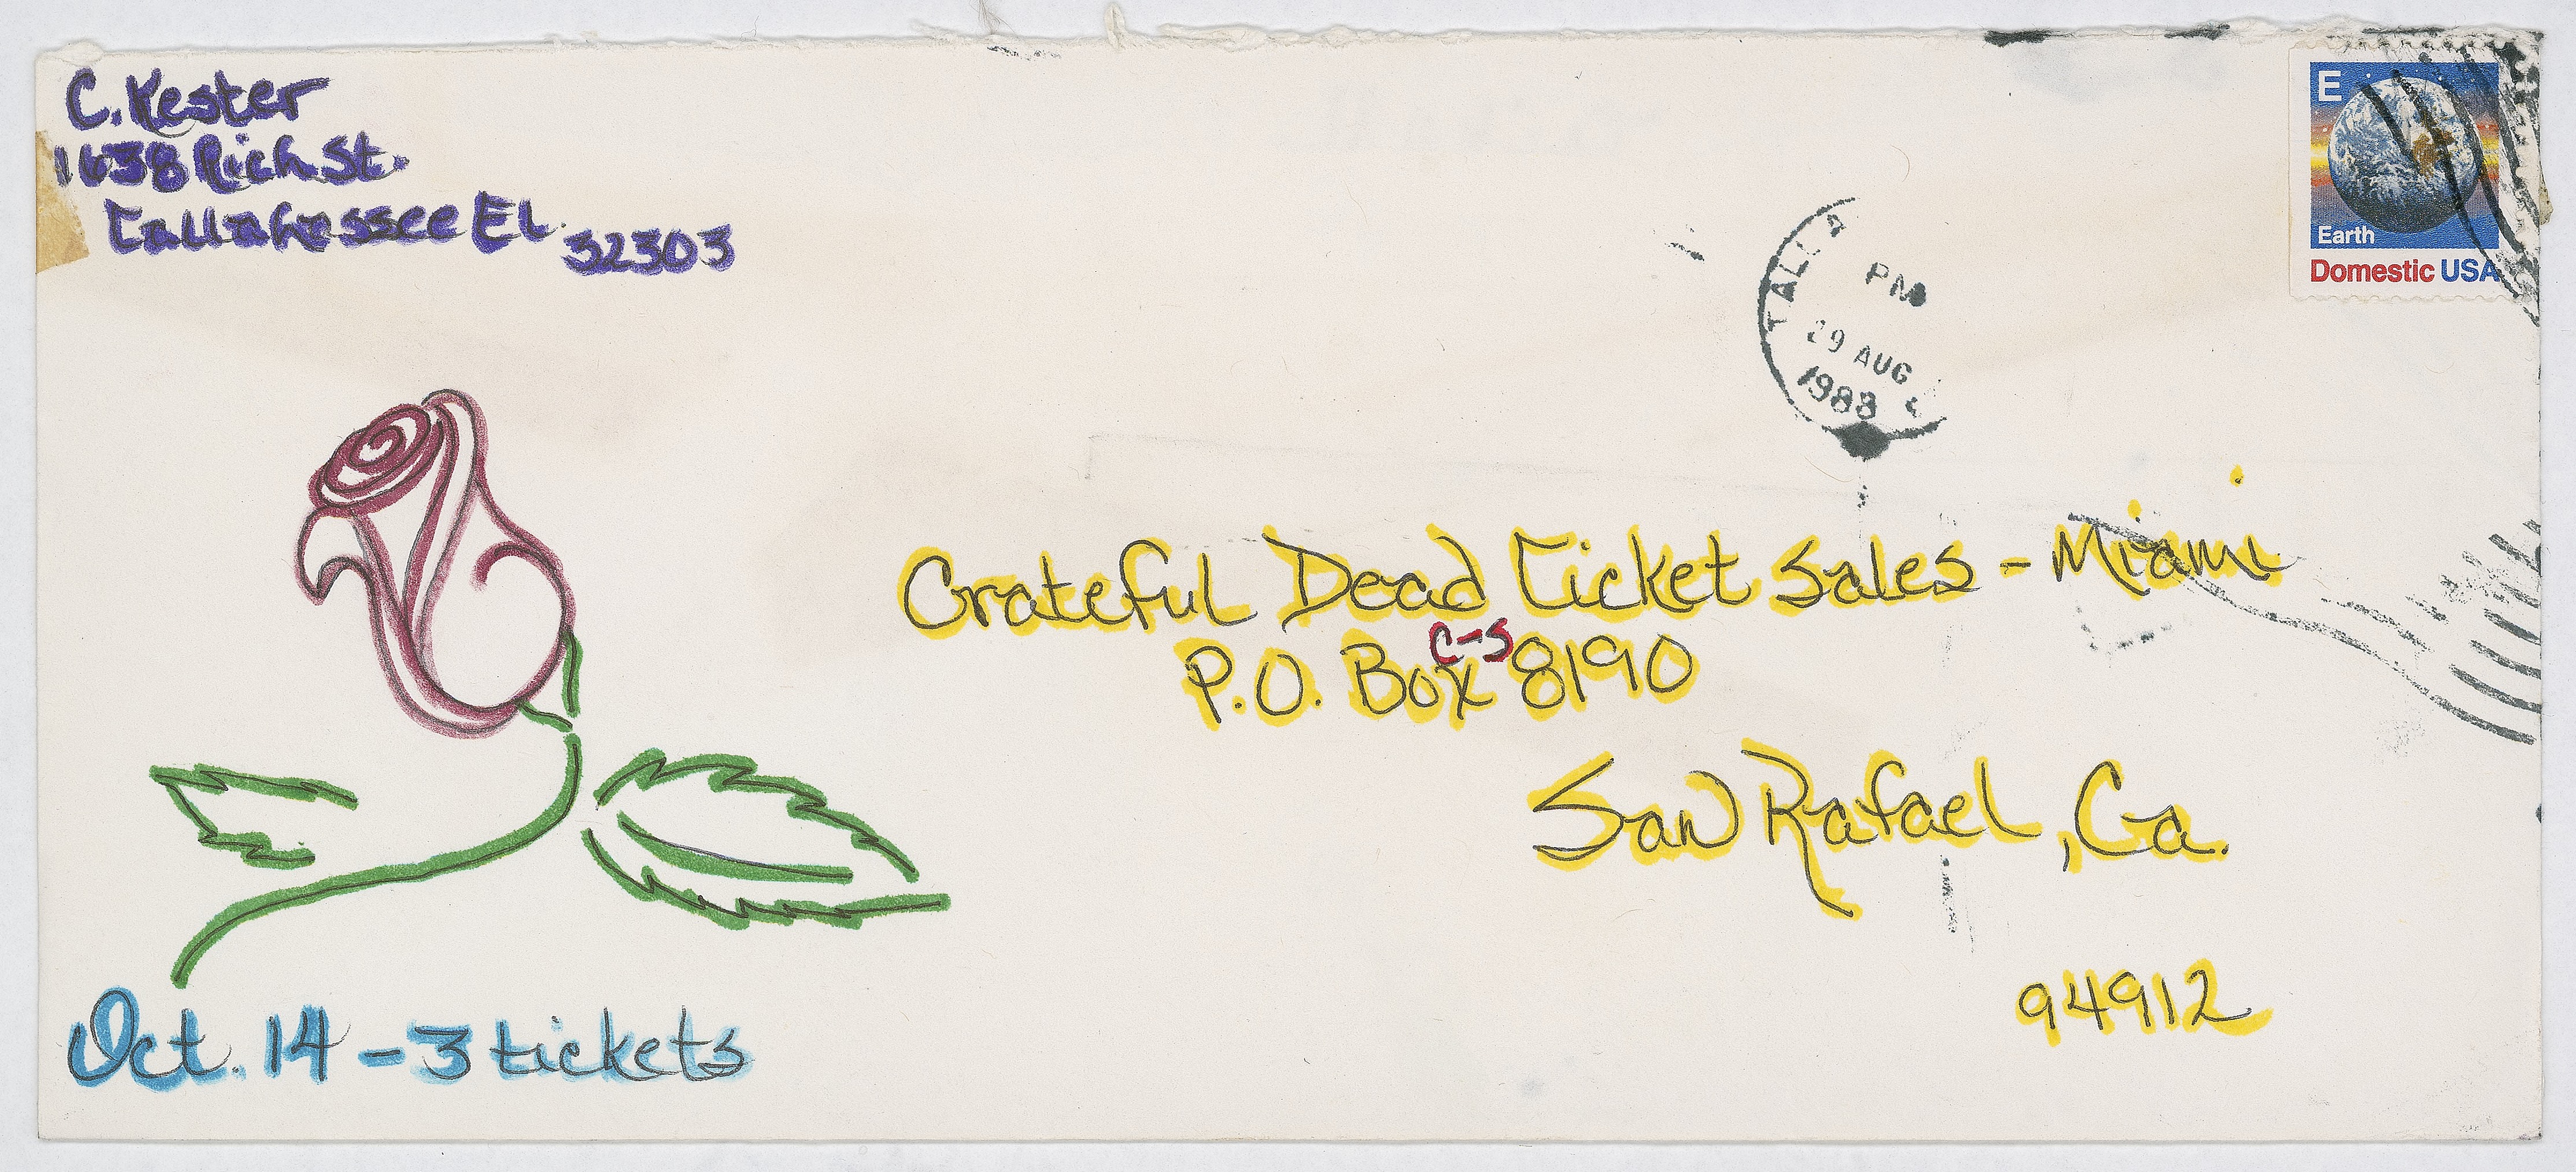 C. Kester
1638 Rich St.
Tallahassee FL. 32303
E
Earth
Domestic USA
PM
29 AUG
1988
Grateful Dead Ticket Sales - Miami
C-S
P.O. Box 8190
San Rafael, Ca.
94912
Oct. 14 - 3 tickets